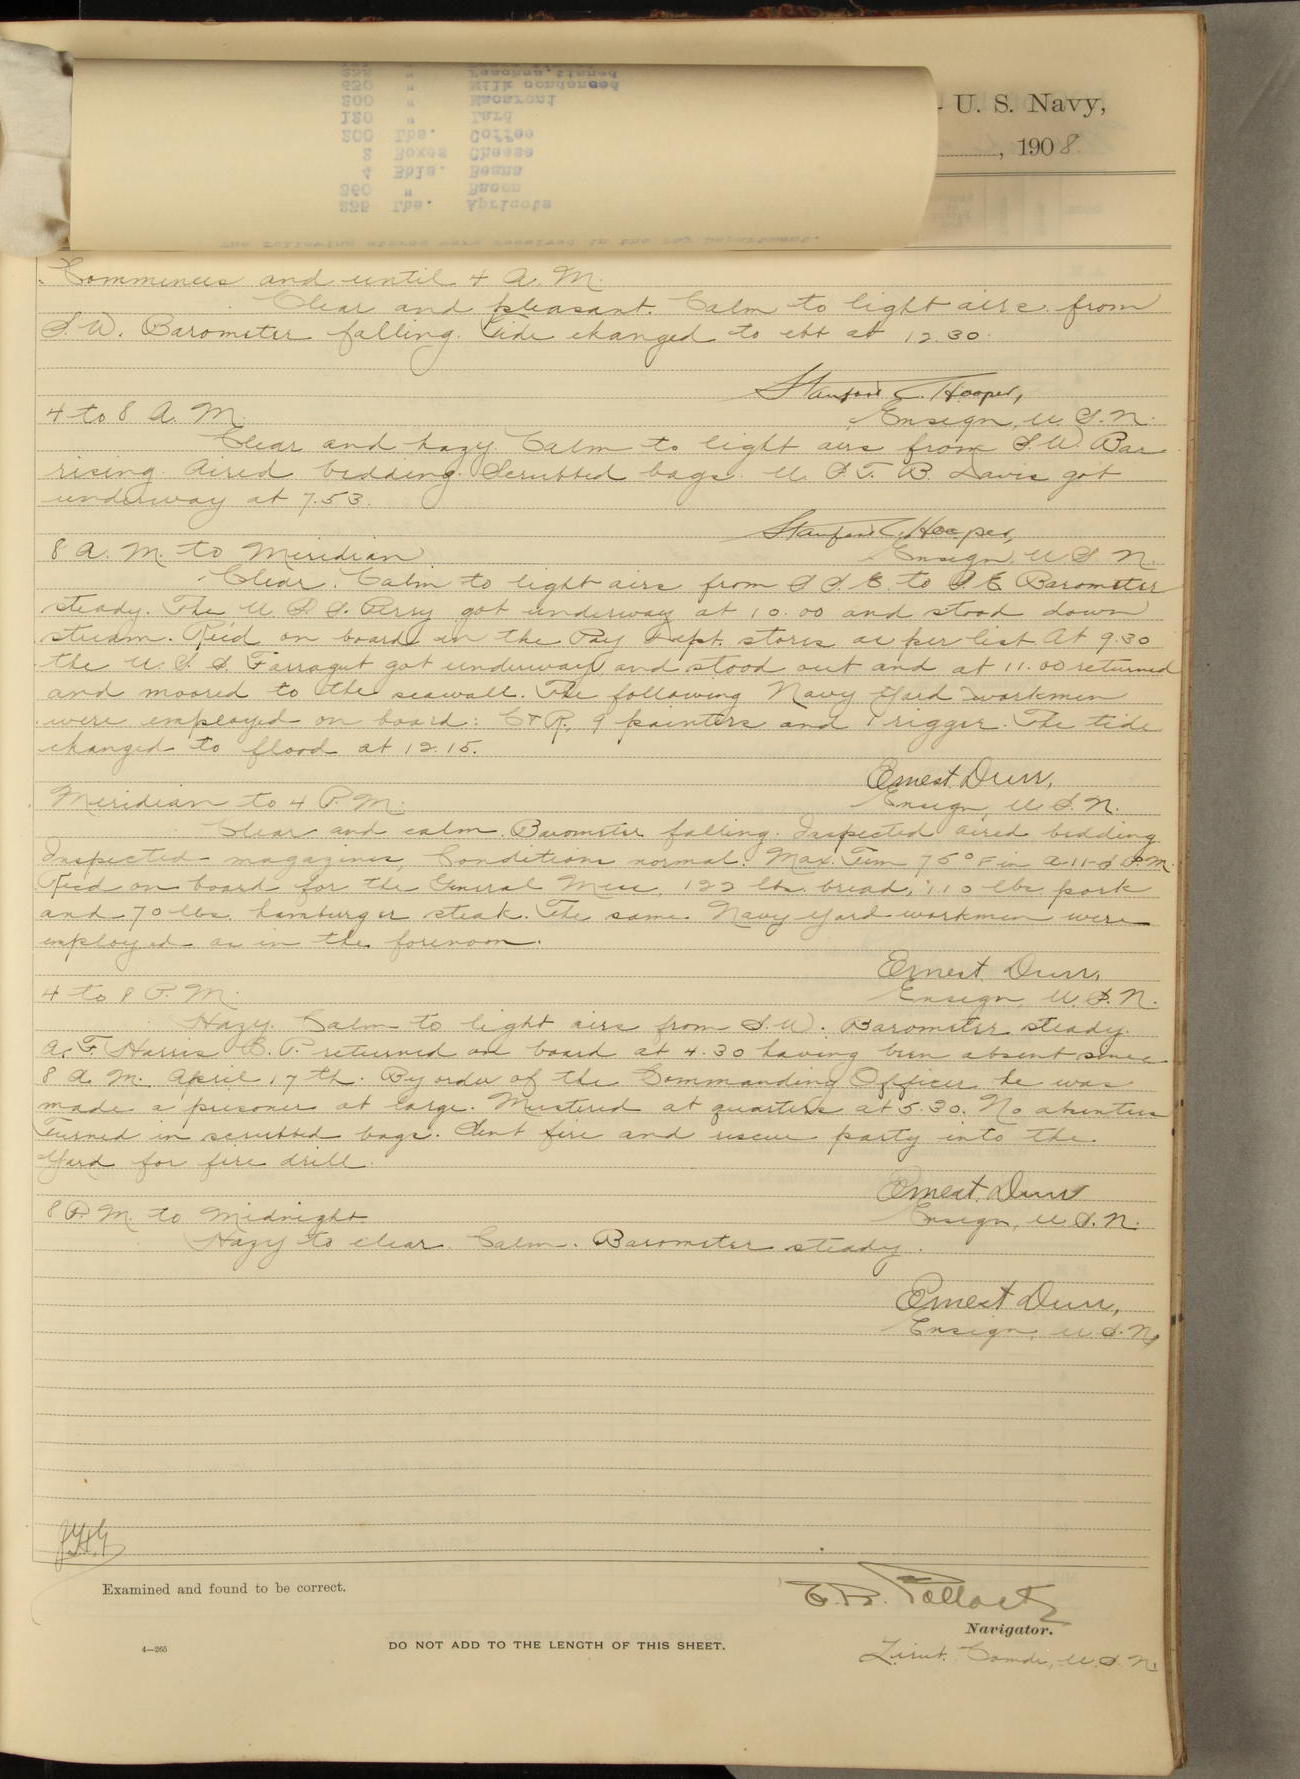 The following stores were received in the Pay Department.
225 Lbs. Apricots
360 " Bacon
4 Bbls. Beans
2 Boxes Cheese
200 Lbs. Coffee
120 " Lard
200 " Macaroni
450 " Milk condensed
U. S. Navy,
, 1908.
Commences and until 4 A. M.
Clear and pleasant. Calm to light airs from
S.W. Barometer falling. Tide changed to ebb at 12.30.
Stanford C. Hooper,
Ensign, U. S. N.
4 to 8 A. M.
Clear and hazy. Calm to light airs from S.W. Bar
rising. Aired bedding. Scrubbed bags. U. S. T. B. Davis got
underway at 7.53.
Stanford C. Hooper,
Ensign, U. S. N.
8 A. M. to Meridian
Clear. Calm to light airs from S.S.E. to S.E. Barometer
steady. The U. S. S. Perry got underway at 10.00 and stood down
stream. Rec'd on board in the Pay Dept. stores as per list. At 9.30
the U. S. S. Farragut got underway and stood out and at 11.00 returned
and moored to the seawall. The following Navy Yard workmen
were employed on board: C & R, 9 painters and 1 rigger. The tide
changed to flood at 12.15.
Ernest Durr,
Ensign, U. S. N.
Meridian to 4 P. M.
Clear and calm. Barometer falling. Inspected aired bedding
Inspected magazines, Conditions normal. Max. Tem 75° F in A-11-S P.M.
Rec'd on board for the General Mess, 122 lbs. bread, 110 lbs. pork
and 70 lbs. hamburger steak. The same Navy Yard workmen were
employed as in the forenoon.
Ernest Durr,
Ensign, U. S. N.
4 to 8 P. M.
Hazy. Calm to light airs from S.W. Barometer steady.
A. F. Harris C. P. returned on board at 4.30 having been absent since
8 A. M. April 17th. By order of the Commanding Officer he was
made a prisoner at large. Mustered at quarters at 5.30. No absentees
Turned in scrubbed bags. Sent fire and rescue party into the
Yard for fire drill.
Ernest Durr
Ensign, U. S. N.
8 P. M. to Midnight
Hazy to clear. Calm. Barometer steady.
Ernest Durr,
Ensign, U. S. N.
Examined and found to be correct.
Navigator.
4—265
DO NOT ADD TO THE LENGTH OF THIS SHEET.
Lieut. Comdr, U. S. N.